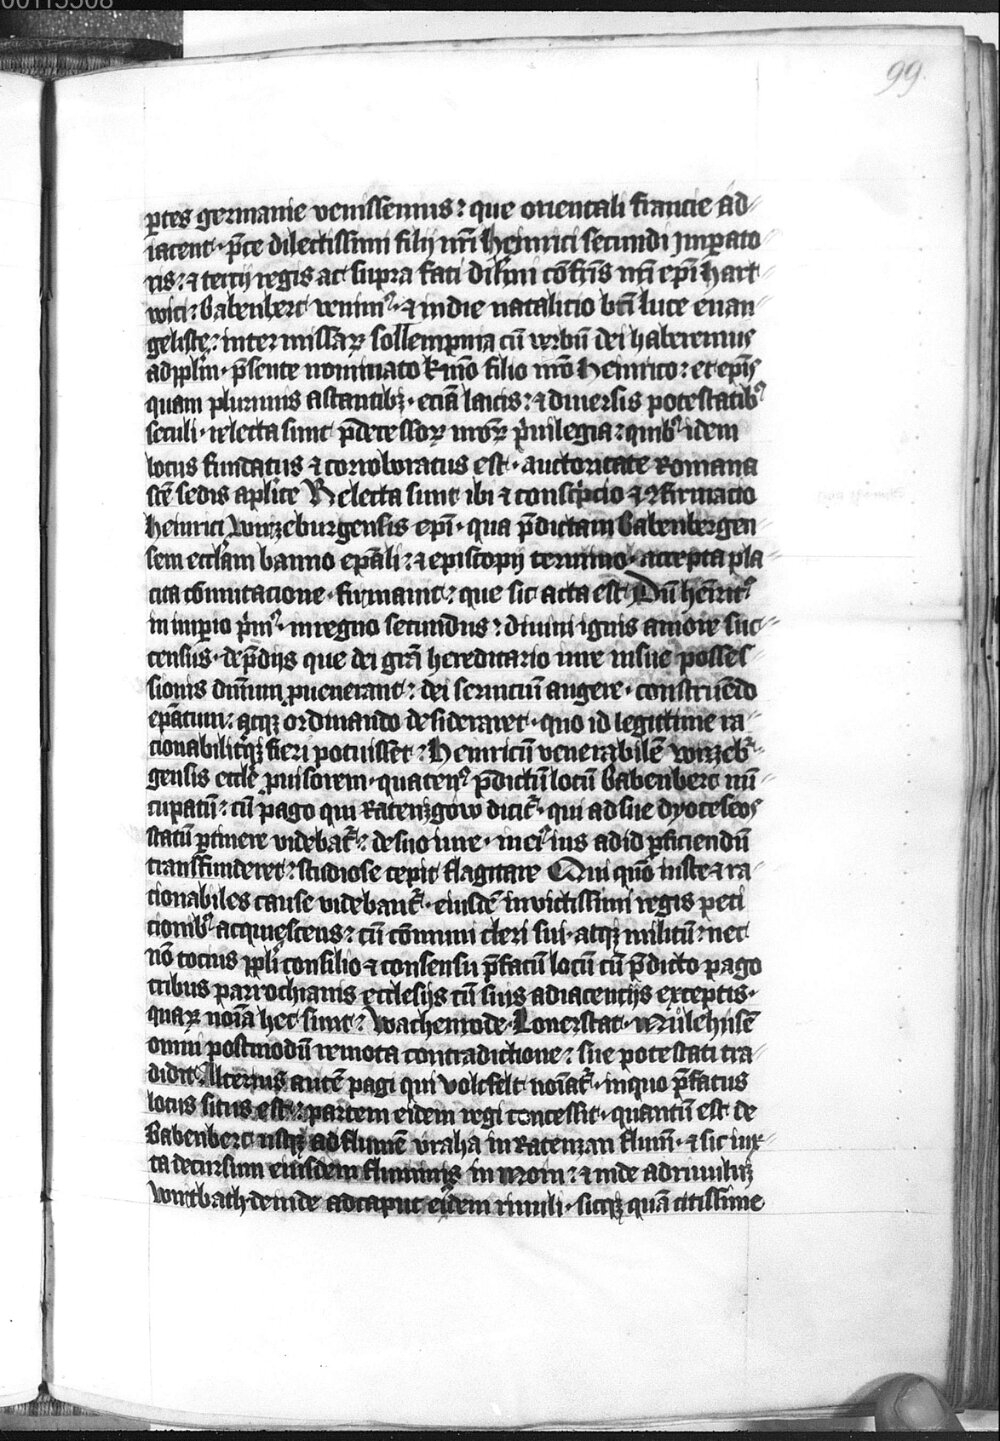 00113308
99.
ꝑtes germanie venissemus: que orientali francie ad
iacent· p̄ce dilectissimi filij nr̄i Heinrici secundi Imꝑato
ris: ⁊ tercij regis ac supra fati dil̄cīmi cōfr̄is nr̄i ep̄i Hart
wici: Babenberc venimꝰ· ⁊ in die natalicio bt̄i luce euan
geliste: inter missaꝝ sollempnia cū verbū dei haberemus
ad ppl̄m· p̄sente nominato k̄mo filio nr̄o Heinrico: et ep̄is
quam plurimis astantibꝫ· eciā laicis: ⁊ diuersis potestatibꝰ
seculi· relecta sunt p̄decessoꝝ nr̄oꝝ p̄uilegia: quibꝰ idem
locus fundatus ⁊ corroboratus est· auctoritate Romana
scē sedis apl̄ice Relecta sunt ibi ⁊ conscͥpcio ⁊ ꝯfirmacio
Heinrici Wirzeburgensis ep̄i· qua p̄dictam Babenbergen
sem eccl̄am banno ep̄ali: ⁊ episcopij termino· accepta pla
cita cōmutacione· firmauit: que sic acta est Dū heinricꝰ
in imꝑio p̄mꝰ· in regno secundus: diuini ignis amore suc
census· de p̄dijs que dei gr̄a hereditario iure in sue posses
sionis dn̄ium ꝓuenerant: dei seruiciū augere· construēdo
ep̄atum: atqꝫ ordinando desideraret· quo id legittime ra
cionabiliterqꝫ fieri potuisset: Heinricū venerabilē wirzeb̄r
gensis eccl̄e ꝓuisorem· quatenꝰ p̄dictū locū Babenberc nū
cupatū: cū pago qui Ratenzgow dicit̄· qui ad sue dyoceseos
statū ꝑtinere videbat̄: de suo iure· in eiꝰ ius ad id ꝑficiendū
transfunderet: studiose cepit flagitare Qui quō iuste ⁊ ra
cionabiles cause videbant̄· eiusdē inuictissimi regis peti
cionibꝰ acquiescens: cū cōmuni cleri sui· atqꝫ militū: nec
nō tocius ppl̄i consilio ⁊ consensu p̄fatū locū cū p̄dicto pago
tribus parrochianis ecclesijs cū suis adiacencijs exceptis·
quaꝝ noīa hec sunt: Wachenrode· Lonerstat· Mulehusē
omni postmodū remota contradictione: sue potestati tra
didit Alterius autē pagi qui volcfelt noīat̄· in quo p̄fatus
locus situs est: partem eidem regi concessit· quantū est de
Babenberc usqꝫ ad flumē vraha in Ratenzan flum̄· ⁊ sic iux
ta decursum eiusdem fluminis in moin: ⁊ inde ad riuulū
wirtbach· deinde ad caput eiusdem riuuli· sicqꝫ quā citissime